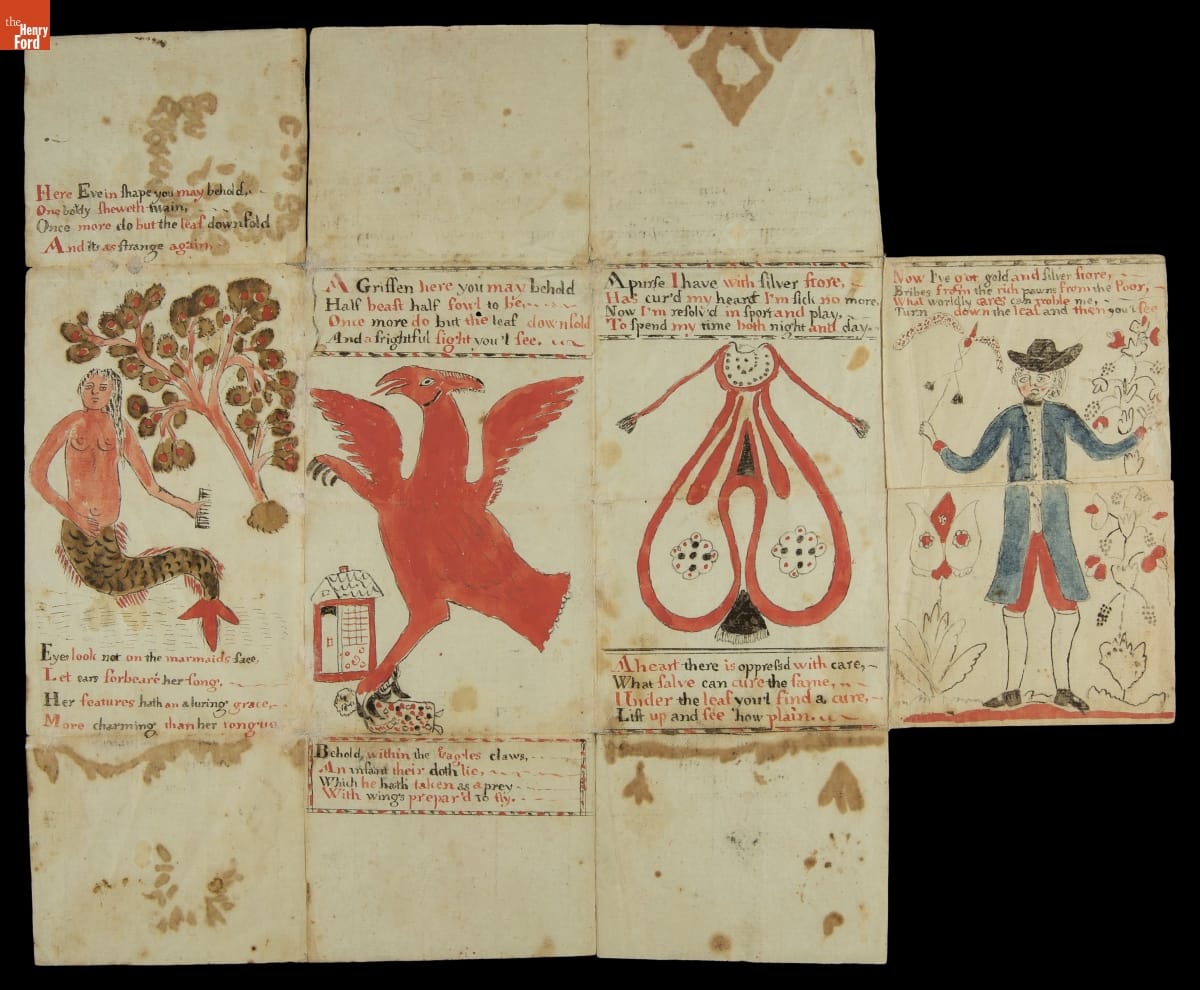 the
Henry
Ford
Here Eve in shape you may behold,
One body sheweth twain,
Once more do but the leaf downfold
And its as strange again.
Eyes look not on the marmaids face,
Let ears forbeare her song,
Her features hath an aluring grace,
More charming than her tongue
A Griffen here you may behold
Half beast half fowl to be,
Once more do but the leaf downfold
And a frightful sight you'l see.
Behold, within the Eagles claws,
An infant their doth lie,
Which he hath taken as a prey
With wings prepar'd to fly.
A purse I have with silver store,
Has cur'd my heart I'm sick no more,
Now I'm resolv'd in sport and play,
To spend my time both night and day.
A heart there is oppressd with care,
What salve can cure the same,
Under the leaf you'l find a cure,
Lift up and see how plain.
Now I've got gold and silver store,
Bribes from the rich pawns from the Poor,
What worldly cares can troble me,
Turn down the leaf and then you'l see